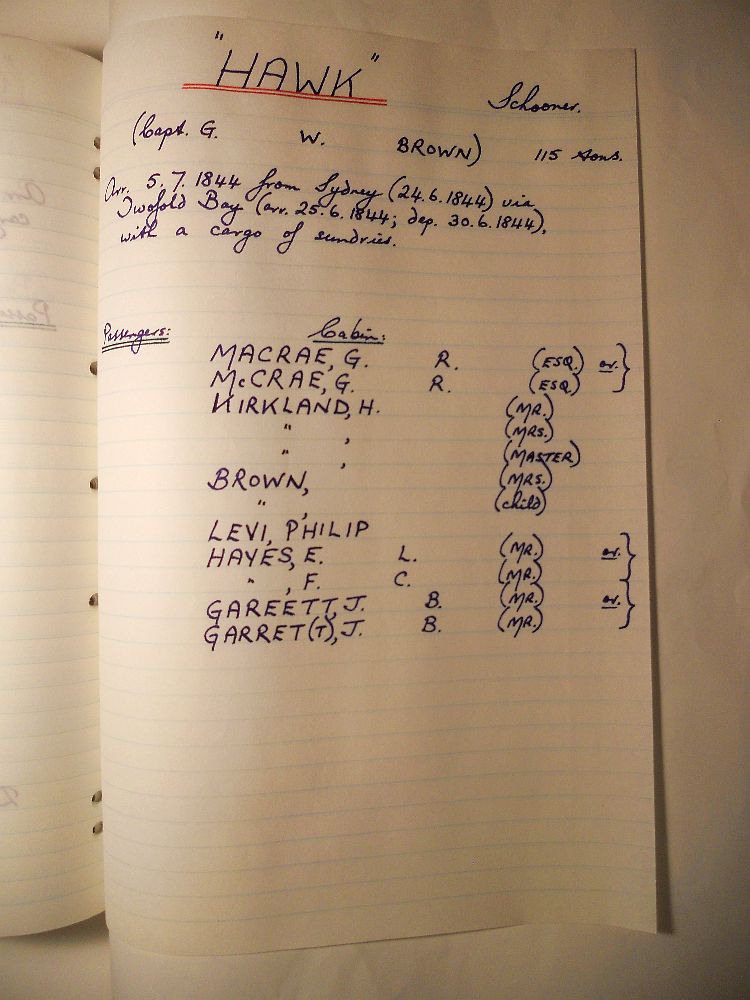 "HAWK"
Schooner.
(Capt. G. W. BROWN) 115 tons.
Arr. 5.7.1844 from Sydney (24.6.1844) via
Twofold Bay (arr. 25.6.1844; dep. 30.6.1844),
with a cargo of sundries.
Passengers: Cabin:
MACRAE, G. R. (ESQ.) or. }
McCRAE, G. R. (ESQ)
KIRKLAND, H. (MR.)
" , (MRS.)
" , (MASTER)
BROWN, (MRS.)
" , (child)
LEVI, PHILIP
HAYES, E. L. (MR.) or. }
" , F. C. (MR.)
GAREETT, J. B. (MR.) or. }
GARRET(T), J. B. (MR.)